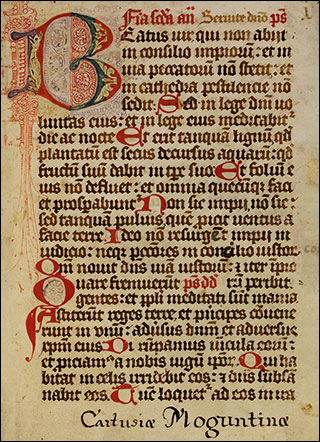 Fia scd'a an̄ Seruite dn̄o ps̄
Beatus uir qui non abiit
in consilio impiorum: et in
uia peccatorum nō stetit: et
in cathedra pestilencie nō
sedit. Sed in lege dn̄i uo
luntas eius: et in lege eius meditabit'
die ac nocte Et erit tanquā lignum qd
plantatum est secus decursus aquarum: qd
fructum suum dabit in tpe suo Et folium e
ius nō defluet: et omnia quecumq; faci
et prosperabunt' Non sic impij nō sic:
sed tanquā puluis quē proicit uentus a
facie terre Ideo nō resurgent impij in
iudicio: neq; peccōres in concilio iustor
om nouit dn̄s uiā iustorum: & iter ipio
Quare fremuerunt ps̄ dd rū peribit.
gentes: et ppli meditati sunt inania
Astiterūt reges terre et prīcipes conuene
runt in unum: aduersus dn̄m et aduersus
xpm eius Dirumpamus uincula eorum:
et proiciamus a nobis iugum ipor. Qui ha
bitat in celis irridebit eos: & dn̄s subsa
nabit eos. Tūc loquet' ad eos in ira
Cartusiæ Moguntinæ